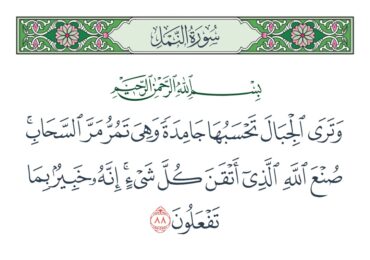 سُورَةُ النَّمْلِ
بِسْمِ اللَّهِ الرَّحْمَٰنِ الرَّحِيمِ
وَتَرَى الْجِبَالَ تَحْسَبُهَا جَامِدَةً وَهِيَ تَمُرُّ مَرَّ السَّحَابِ ۚ
صُنْعَ اللَّهِ الَّذِي أَتْقَنَ كُلَّ شَيْءٍ ۚ إِنَّهُ خَبِيرٌ بِمَا
تَفْعَلُونَ ٨٨